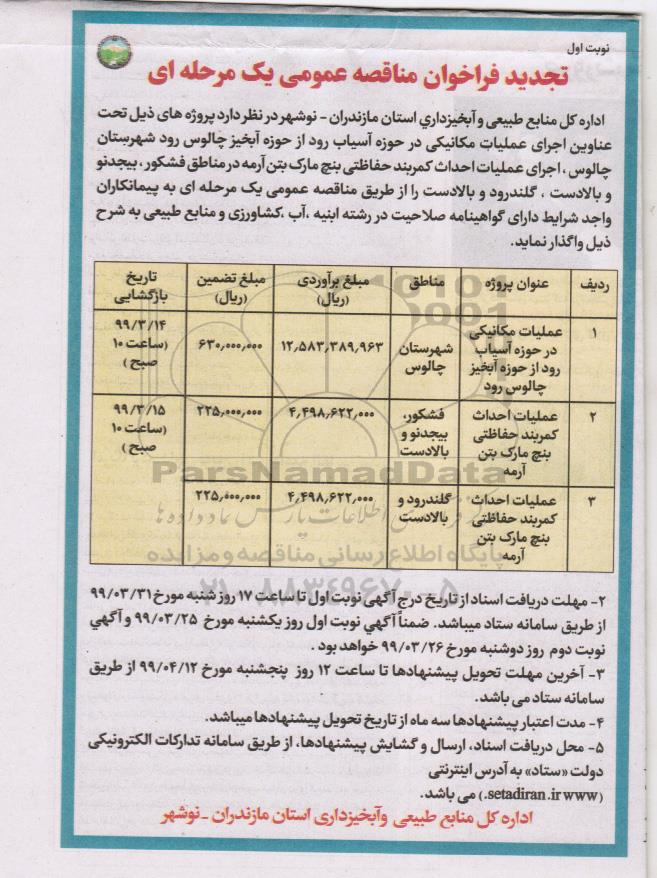 نوبت اول
تجدید فراخوان مناقصه عمومی یک مرحله ای
اداره کل منابع طبیعی و آبخیزداري استان مازندران - نوشهر در نظر دارد پروژه های ذیل تحت
عناوین اجرای عملیات مکانیکی در حوزه آسیاب رود از حوزه آبخیز چالوس رود شهرستان
چالوس ، اجرای عملیات احداث کمربند حفاظتی بنچ مارک بتن آرمه در مناطق فشکور ، بیجدنو
و بالادست ، گلندرود و بالادست را از طریق مناقصه عمومی یک مرحله ای به پیمانکاران
واجد شرایط دارای گواهینامه صلاحیت در رشته ابنیه ،آب ،کشاورزی و منابع طبیعی به شرح
ذیل واگذار نماید.
ردیف عنوان پروژه مناطق مبلغ برآوردی (ریال) مبلغ تضمین (ریال) تاریخ بازگشایی
۱ عملیات مکانیکی در حوزه آسیاب رود از حوزه آبخیز چالوس رود شهرستان چالوس ۱۲,۵۸۳,۳۸۹,۹۶۳ ۶۳۰,۰۰۰,۰۰۰ ۹۹/۳/۱۴ (ساعت ۱۰ صبح )
۲ عملیات احداث کمربند حفاظتی بنچ مارک بتن آرمه فشکور، بیجدنو و بالادست ۴,۴۹۸,۶۲۲,۰۰۰ ۲۲۵,۰۰۰,۰۰۰ ۹۹/۳/۱۵ (ساعت ۱۰ صبح )
۳ عملیات احداث کمربند حفاظتی بنچ مارک بتن آرمه گلندرود و بالادست ۴,۴۹۸,۶۲۲,۰۰۰ ۲۲۵,۰۰۰,۰۰۰
ParsNamadData
پایگاه اطلاع رسانی مناقصه و مزایده
۰۲۱-۸۸۳۴۹۶۷۰-۵
۲- مهلت دریافت اسناد از تاریخ درج آگهی نوبت اول تا ساعت ۱۷ روز شنبه مورخ ۹۹/۰۳/۳۱
از طریق سامانه ستاد میباشد. ضمناً آگهي نوبت اول روز یکشنبه مورخ ۹۹/۰۳/۲۵ و آگهي
نوبت دوم روز دوشنبه مورخ ۹۹/۰۳/۲۶ خواهد بود .
۳- آخرین مهلت تحویل پیشنهادها تا ساعت ۱۲ روز پنجشنبه مورخ ۹۹/۰۴/۱۲ از طریق
سامانه ستاد می باشد.
۴- مدت اعتبار پیشنهادها سه ماه از تاریخ تحویل پیشنهادها میباشد.
۵- محل دریافت اسناد، ارسال و گشایش پیشنهادها، از طریق سامانه تدارکات الکترونیکی
دولت «ستاد» به آدرس اینترنتی
(setadiran.ir www.) می باشد.
اداره کل منابع طبیعی وآبخیزداری استان مازندران -نوشهر